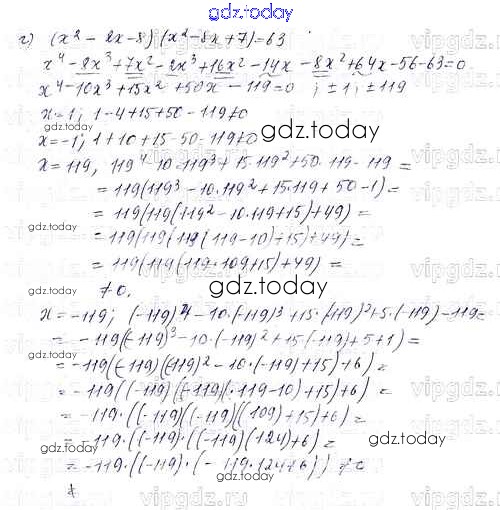 gdz.today
г) (x² - 2x - 8)(x² - 8x + 7) = 63
x⁴ - 8x³ + 7x² - 2x³ + 16x² - 14x - 8x² + 64x - 56 - 63 = 0
x⁴ - 10x³ + 15x² + 50x - 119 = 0 ; ±1; ±119
x = 1; 1 - 4 + 15 + 50 - 119 ≠ 0
gdz.today
x = -1; 1 + 10 + 15 - 50 - 119 ≠ 0
x = 119, 119⁴ - 10·119³ + 15·119² + 50·119 - 119 =
= 119(119³ - 10·119² + 15·119 + 50 - 1) =
gdz.today
= 119(119(119² - 10·119 + 15) + 49) =
gdz.today
= 119(119(119(119 - 10) + 15) + 49) =
gdz.today
= 119(119(119·109 + 15) + 49) =
≠ 0.
gdz.today
x = -119; (-119)⁴ - 10·(-119)³ + 15·(119)² + 5·(-119) - 119 =
= -119((-119)³ - 10·(-119)² + 15(-119) + 5 + 1) =
= -119((-119)((-119)² - 10·(-119) + 15) + 6) =
gdz.today
= -119((-119)((-119)(·119 - 10) + 15) + 6) =
= -119·((-119)((-119)((109) + 15) + 6) =
gdz.today
= -119·((-119)·((-119)(124) + 6) =
gdz.today
= -119·((-119)·(-119·124 + 6)) ≠ 0
gdz.today